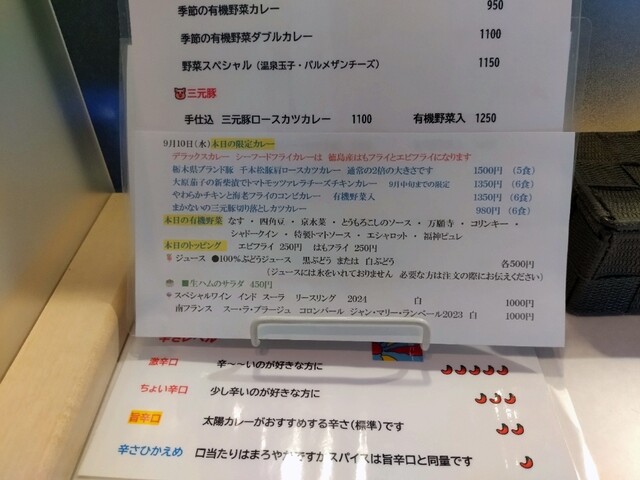 季節の有機野菜カレー 950
季節の有機野菜ダブルカレー 1100
野菜スペシャル（温泉玉子・パルメザンチーズ） 1150
三元豚
手仕込 三元豚ロースカツカレー 1100 有機野菜入 1250
9月10日(水)本日の限定カレー
デラックスカレー シーフードフライカレーは 徳島産はもフライとエビフライになります
栃木県ブランド豚 千本松豚肩ロースカツカレー 通常の2倍の大きさです 1500円 （5食）
大原茄子の新柴漬でトマトモッツァレラチーズチキンカレー 9月中旬までの限定 1350円 （6食）
やわらかチキンと海老フライのコンビカレー 有機野菜入 1350円 （6食）
まかないの三元豚切り落としカツカレー 980円 （6食）
本日の有機野菜 なす・四角豆・京水菜・とうもろこしのソース・万願寺・コリンキー・
シャドークイン・特製トマトソース・エシャロット・福神ピュレ
本日のトッピング エビフライ 250円 はもフライ 250円
ジュース ●100%ぶどうジュース 黒ぶどう または 白ぶどう 各500円
（ジュースには氷をいれておりません 必要な方は注文の際にお伝えください）
■生ハムのサラダ 450円
スペシャルワイン インド スーラ リースリング 2024 白 1000円
南フランス スー・ラ・プラージュ コロンバール ジャン・マリー・ランベール2023 白 1000円
辛さレベル
激辛口 辛〜〜いのが好きな方に
ちょい辛口 少し辛いのが好きな方に
旨辛口 太陽カレーがおすすめする辛さ(標準)です
辛さひかえめ 口当たりはまろやかですがスパイスは旨辛口と同量です